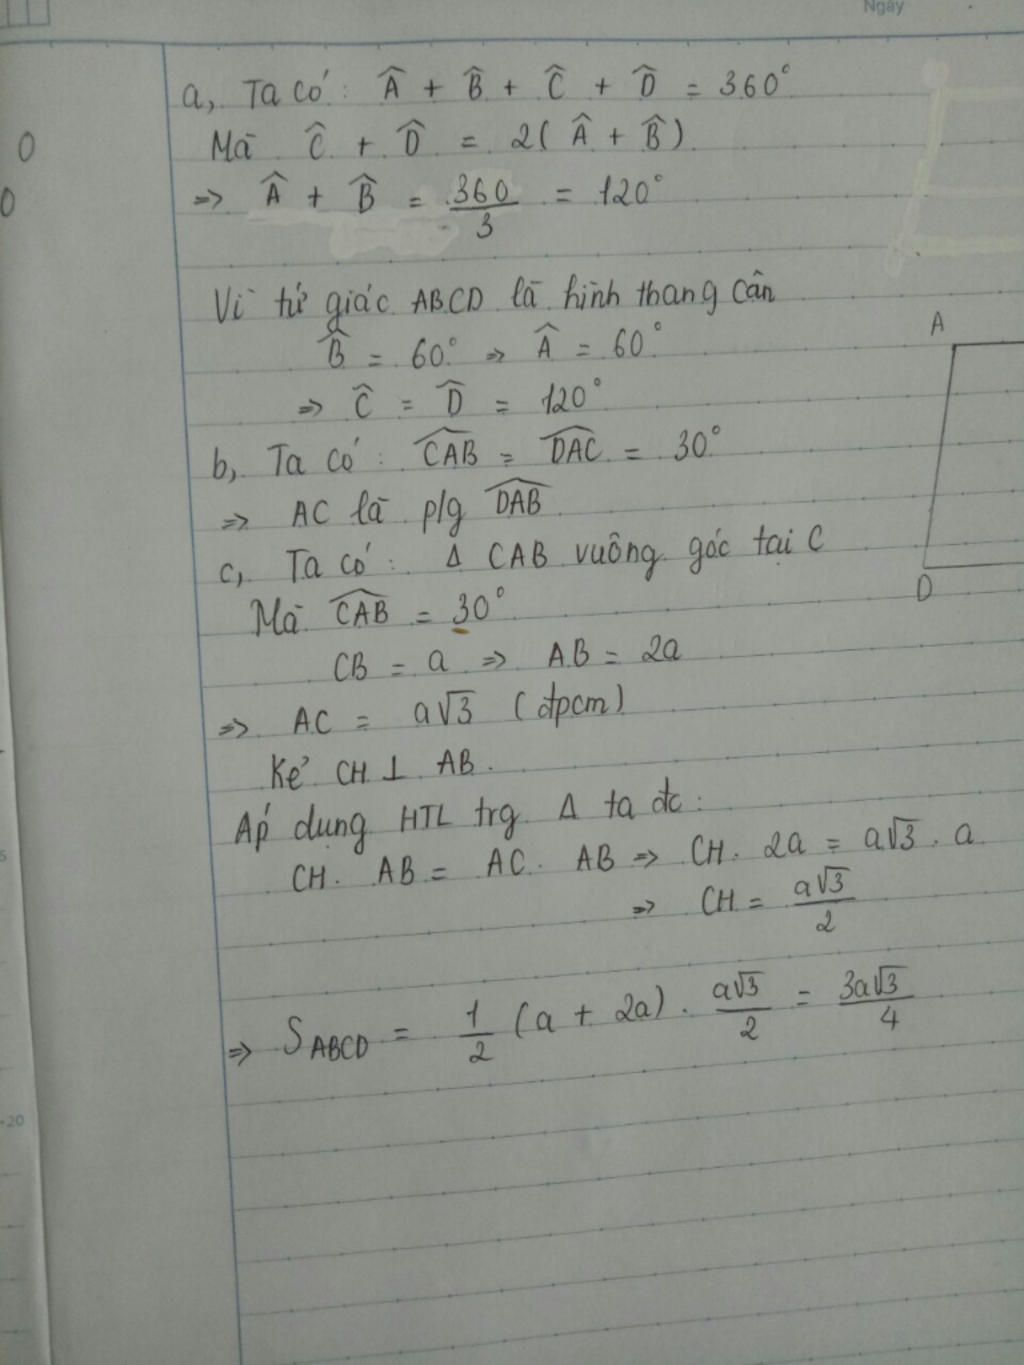 Ngày
a, Ta có: Â + B̂ + Ĉ + D̂ = 360°
0
Mà Ĉ + D̂ = 2(Â + B̂)
0
=> Â + B̂ = 360/3 = 120°
Vì tứ giác ABCD là hình thang cân
A
B̂ = 60° => Â = 60°
=> Ĉ = D̂ = 120°
b, Ta có: \widehat{CAB} = \widehat{DAC} = 30°
=> AC là p/g \widehat{DAB}
c, Ta có: Δ CAB vuông góc tại C
D
Mà \widehat{CAB} = 30°
CB = a => AB = 2a
=> AC = a√3 (đpcm)
Kẻ CH ⊥ AB.
Áp dụng HTL trg Δ ta đc:
CH. AB = AC. AB => CH. 2a = a√3 . a
=> CH = a√3/2
=> S_{ABCD} = 1/2 (a + 2a) . a√3/2 = 3a√3/4
20